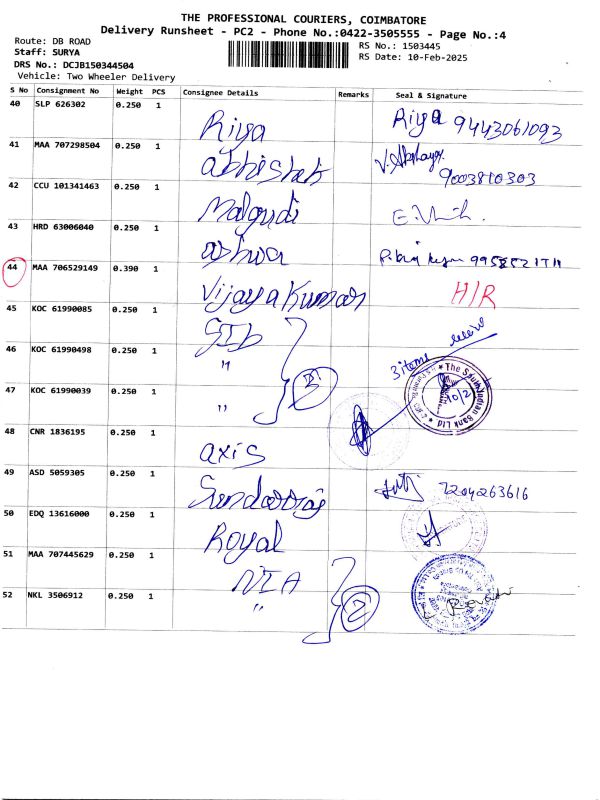 THE PROFESSIONAL COURIERS, COIMBATORE
Delivery Runsheet - PC2 - Phone No.:0422-3505555 - Page No.:4
Route: DB ROAD
RS No.: 1503445
Staff: SURYA
RS Date: 10-Feb-2025
DRS No.: DCJB150344504
Vehicle: Two Wheeler Delivery
S No Consignment No Weight PCS Consignee Details Remarks Seal & Signature
40 SLP 626302 0.250 1 Riya Riya 9443061093
41 MAA 707298504 0.250 1 abhishek 9003810303
42 CCU 101341463 0.250 1 Malgudi
43 HRD 63006040 0.250 1 ashwa
44 MAA 706529149 0.390 1 Vijaya Kumar H/R
45 KOC 61990085 0.250 1 SIB
46 KOC 61990498 0.250 1 " 3 items
47 KOC 61990039 0.250 1 " 3 The South Indian Bank Ltd 10/2
48 CNR 1836195 0.250 1 axis
49 ASD 5059305 0.250 1 Sundarraj 7204263616
50 EDQ 13616000 0.250 1 Royal
51 MAA 707445629 0.250 1 NIA
52 NKL 3506912 0.250 1 " 2 Revathi